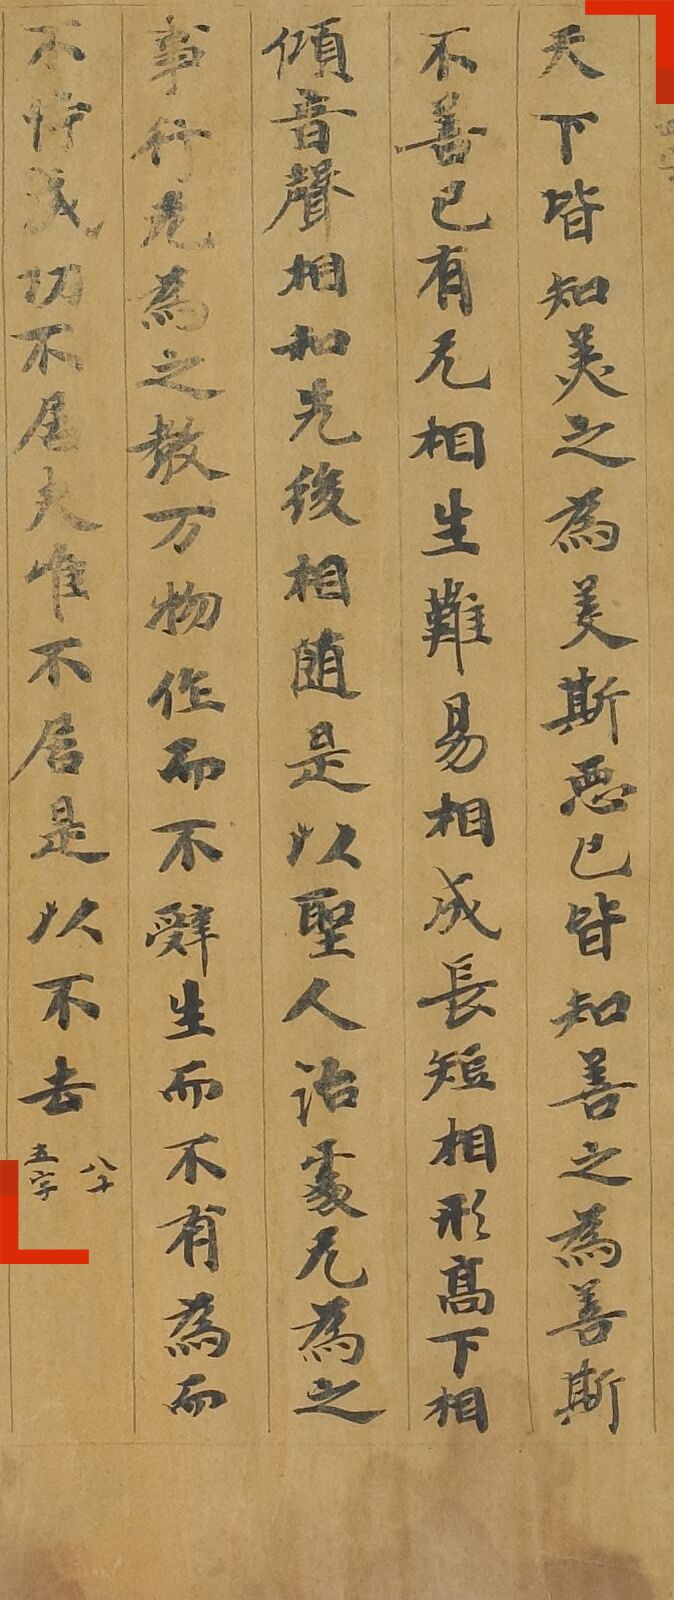 天下皆知美之為美斯惡已皆知善之為善斯
不善已有无相生難易相成長短相形高下相
傾音聲相和先後相随是以聖人治處无為之
事行无為之教万物作而不辤生而不有為而
不恃成功不居夫唯不居是以不去
八十
五字